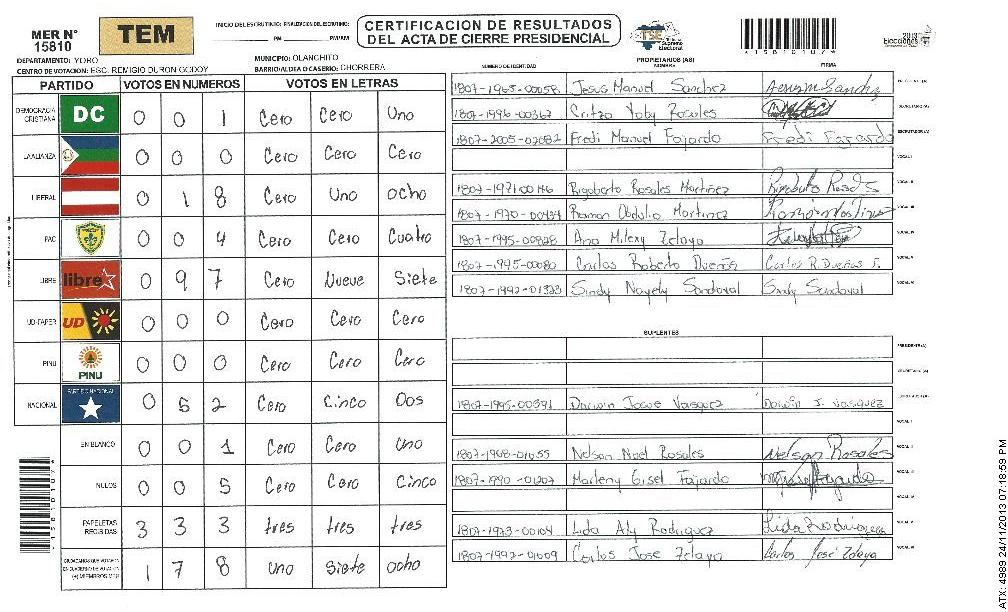 MER N° 15810
TEM
INICIO DEL ESCRUTINIO: FINALIZACION DEL ESCRUTINIO:
PM PM/AM
CERTIFICACION DE RESULTADOS
DEL ACTA DE CIERRE PRESIDENCIAL
TSE Tribunal Supremo Electoral
2013 Elecciones
DEPARTAMENTO: YORO
MUNICIPIO: OLANCHITO
CENTRO DE VOTACION: ESC. REMIGIO DURON GODOY
BARRIO/ALDEA O CASERIO: CHORRERA
PARTIDO VOTOS EN NUMEROS VOTOS EN LETRAS
DEMOCRACIA CRISTIANA DC 0 0 1 Cero Cero Uno
LA ALIANZA 0 0 0 Cero Cero Cero
LIBERAL 0 1 8 Cero Uno ocho
PAC 0 0 4 Cero Cero Cuatro
LIBRE libre 0 9 7 Cero Nueve Siete
UD-FAPER UD 0 0 0 Cero Cero Cero
PINU PINU 0 0 0 Cero Cero Cero
NACIONAL PARTIDO NACIONAL 0 5 2 Cero Cinco Dos
EN BLANCO 0 0 1 Cero Cero Uno
NULOS 0 0 5 Cero Cero Cinco
PAPELETAS RECIBIDAS 3 3 3 tres tres tres
CIUDADANOS QUE VOTARON EN CUADERNO DE VOTACION (+) MIEMBROS MER 1 7 8 Uno Siete ocho
NUMERO DE IDENTIDAD PROPIETARIOS (AS) NOMBRE FIRMA
1807-1965-00058 Jesus Manuel Sanchez PRESIDENTE (A)
1807-1996-00362 Critza Yoby Rosales SECRETARIO (A)
1807-2005-02082 Fredi Manuel Fajardo Fredi Fajardo ESCRUTADOR (A)
VOCAL I
1807-1971-00146 Rigoberto Rosales Martinez VOCAL II
1807-1970-00434 Ramon Obdulio Martinez VOCAL III
1807-1995-00828 Ana Mileny Zelaya VOCAL IV
1807-1995-00080 Carlos Roberto Dueñas Carlos R. Dueñas VOCAL V
1807-1992-01323 Sindy Nayely Sandoval Sindy Sandoval VOCAL VI
SUPLENTES
PRESIDENTE (A)
SECRETARIO (A)
1807-1995-00391 Darwin Josue Vasquez Darwin J. Vasquez ESCRUTADOR (A)
VOCAL I
1807-1968-01055 Nelson Noel Rosales Nelson Rosales VOCAL II
1807-1990-01207 Marleny Gisel Fajardo VOCAL III
VOCAL IV
1807-1973-00104 Lida Aly Rodriguez Lida Rodriguez VOCAL V
1807-1992-01009 Carlos Jose Zelaya Carlos José Zelaya VOCAL VI
ATX: 4989 24/11/2013 07:18:59 PM